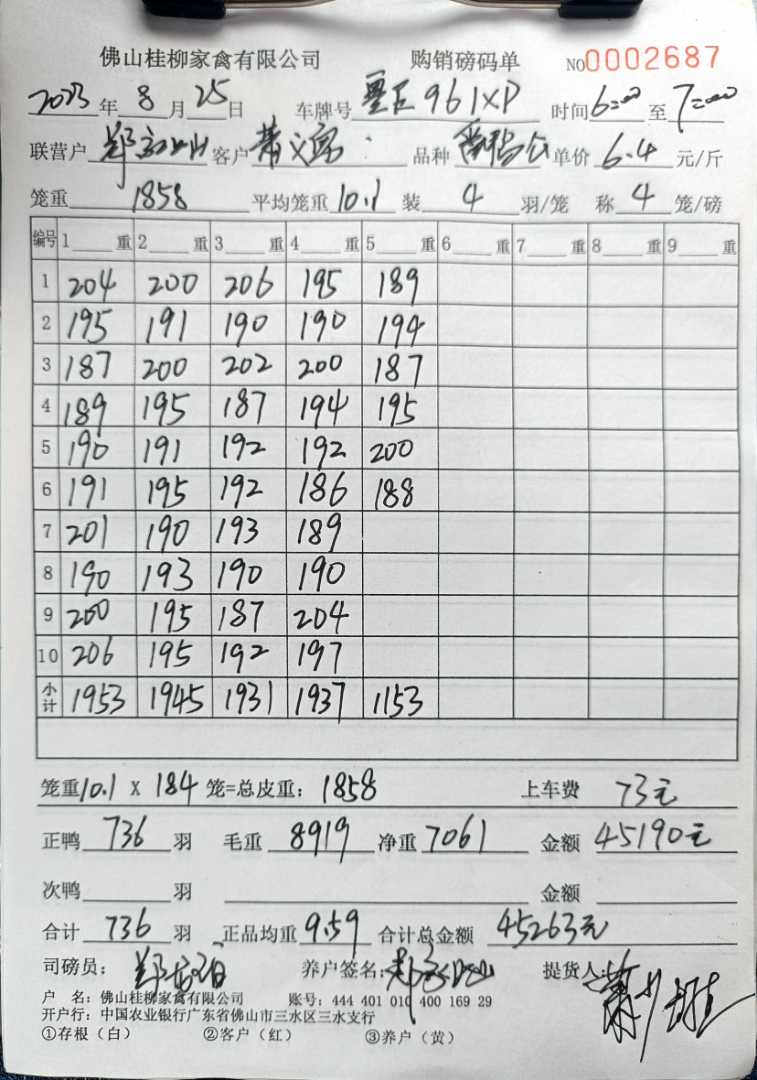 佛山桂柳家禽有限公司 购销磅码单 NO0002687
2023年8月25日 车牌号 961XP 时间6:00至7:00
联营户 郑 客户 萧义 品种 单价6.4元/斤
笼重1858 平均笼重10.1装4羽/笼 称4笼/磅
编号 1 重 2 重 3 重 4 重 5 重 6 重 7 重 8 重 9 重
1 204 200 206 195 189
2 195 191 190 190 194
3 187 200 202 200 187
4 189 195 187 194 195
5 190 191 192 192 200
6 191 195 192 186 188
7 201 190 193 189
8 190 193 190 190
9 200 195 187 204
10 206 195 192 197
小计 1953 1945 1931 1937 1153
笼重10.1X184笼=总皮重:1858 上车费 73元
正鸭736羽 毛重8919净重7061 金额45190元
次鸭 羽 金额
合计736羽 正品均重9.59合计总金额45263元
司磅员:郑 养户签名:郑 提货人:萧
户 名:佛山桂柳家禽有限公司 账号:444 401 010 400 169 29
开户行:中国农业银行广东省佛山市三水区三水支行
①存根(白) ②客户(红) ③养户(黄)